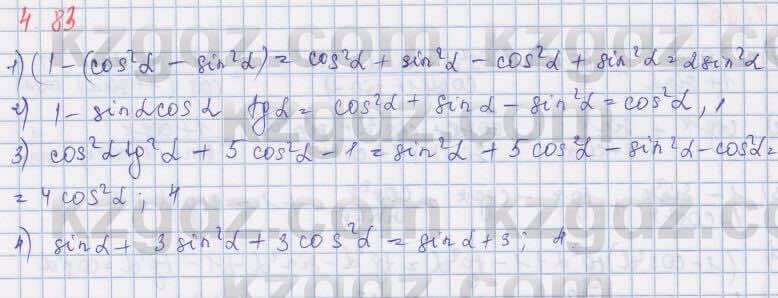 4 83
1) (1 - (cos²α - sin²α) = cos²α + sin²α - cos²α + sin²α = 2sin²α
2) 1 - sinαcosα tgα = cos²α + sinα - sin²α = cos²α, 1
3) cos²αtg²α + 5cos²α - 1 = sin²α + 5cos²α - sin²α - cos²α =
= 4cos²α; 4
4) sinα + 3sin²α + 3cos²α = sinα + 3; 4
kzgdz.com